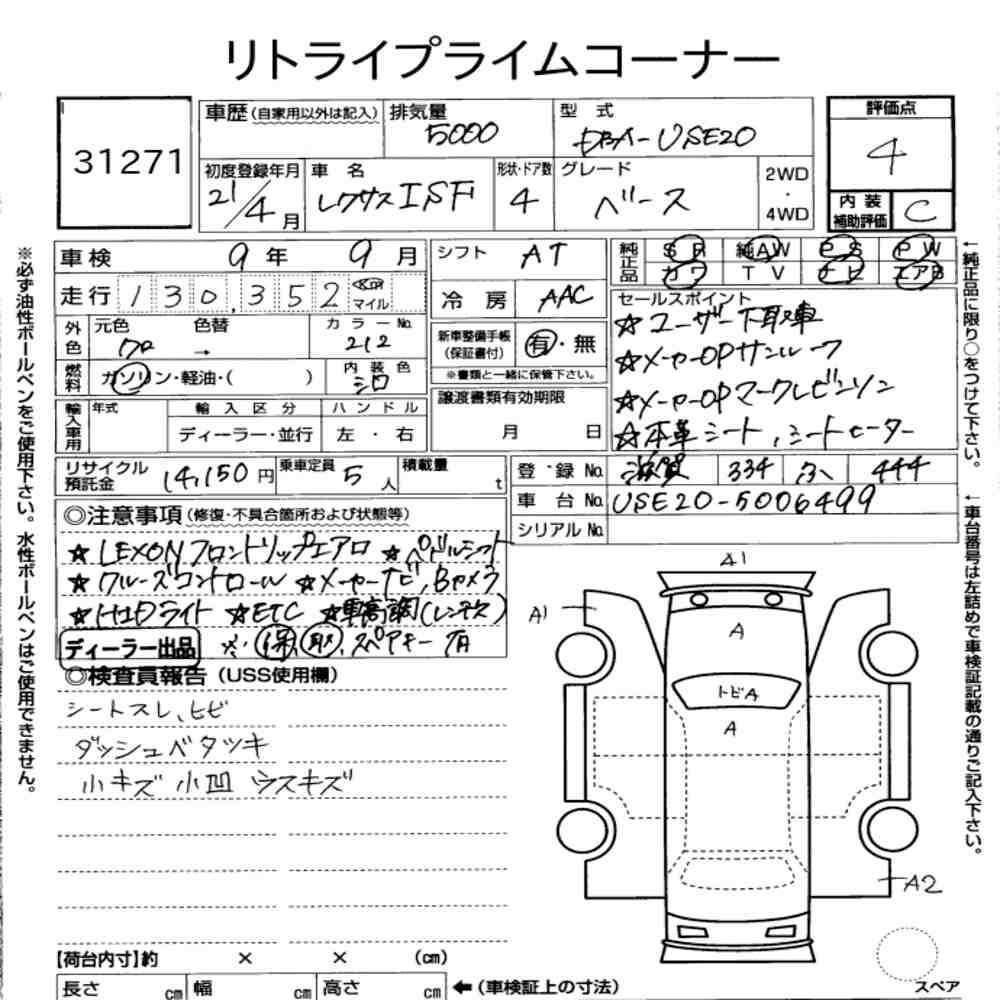 リトライプライムコーナー
31271
車歴(自家用以外は記入)
排気量
5000
型式
DBA-USE20
評価点
4
初度登録年月
21/4月
車名
レクサスISF
形状・ドア数
4
グレード
ベース
2WD
・
4WD
内装
補助評価
C
車検
9年 9月
シフト
AT
純正品
SR 純AW PS PW
カワ TV ナビ エアB
走行
130,352
Km
マイル
冷房
AAC
セールスポイント
☆ユーザー下取車
☆メーカーOPサンルーフ
☆メーカーOPマークレビンソン
☆本革シート,シートヒーター
外色
元色
色替
→
カラーNo.
212
新車整備手帳
(保証書付)
有・無
※書類と一緒に保管下さい。
燃料
ガソリン・軽油・( )
内装色
シロ
輸入車用
年式
輸入区分
ディーラー・並行
ハンドル
左・右
譲渡書類有効期限
月 日
リサイクル
預託金
14,150円
乗車定員
5人
積載量
t
登録No.
滋賀 334 444
車台No.
USE20-5006499
シリアルNo.
◎注意事項(修復・不具合箇所および状態等)
☆LEXONフロントリップエアロ ☆パドルシフト
☆クルーズコントロール ☆メーカーナビ,Bカメラ
☆HIDライト ☆ETC ☆車高調(レンテック)
ディーラー出品
※.保,取,スペアキー有
◎検査員報告(USS使用欄)
シートスレ、ヒビ
ダッシュベタツキ
小キズ 小凹 ウスキズ
A1
A1
A
トビA
A
A2
スペア
【荷台内寸】約 × × (cm)
長さ cm 幅 cm 高さ cm
←(車検証上の寸法)
※必ず油性ボールペンをご使用下さい。水性ボールペンはご使用できません。
←純正品に限り○をつけて下さい。
←車台番号は左詰めで車検証記載の通りご記入下さい。